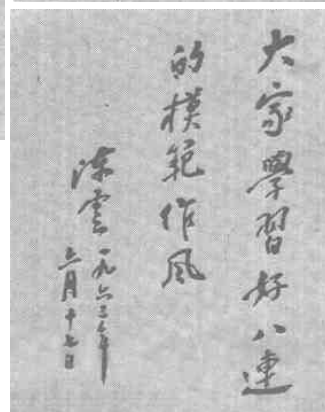 大家學習好八連
的模範作風
陳雲一九六三年
六月十七日